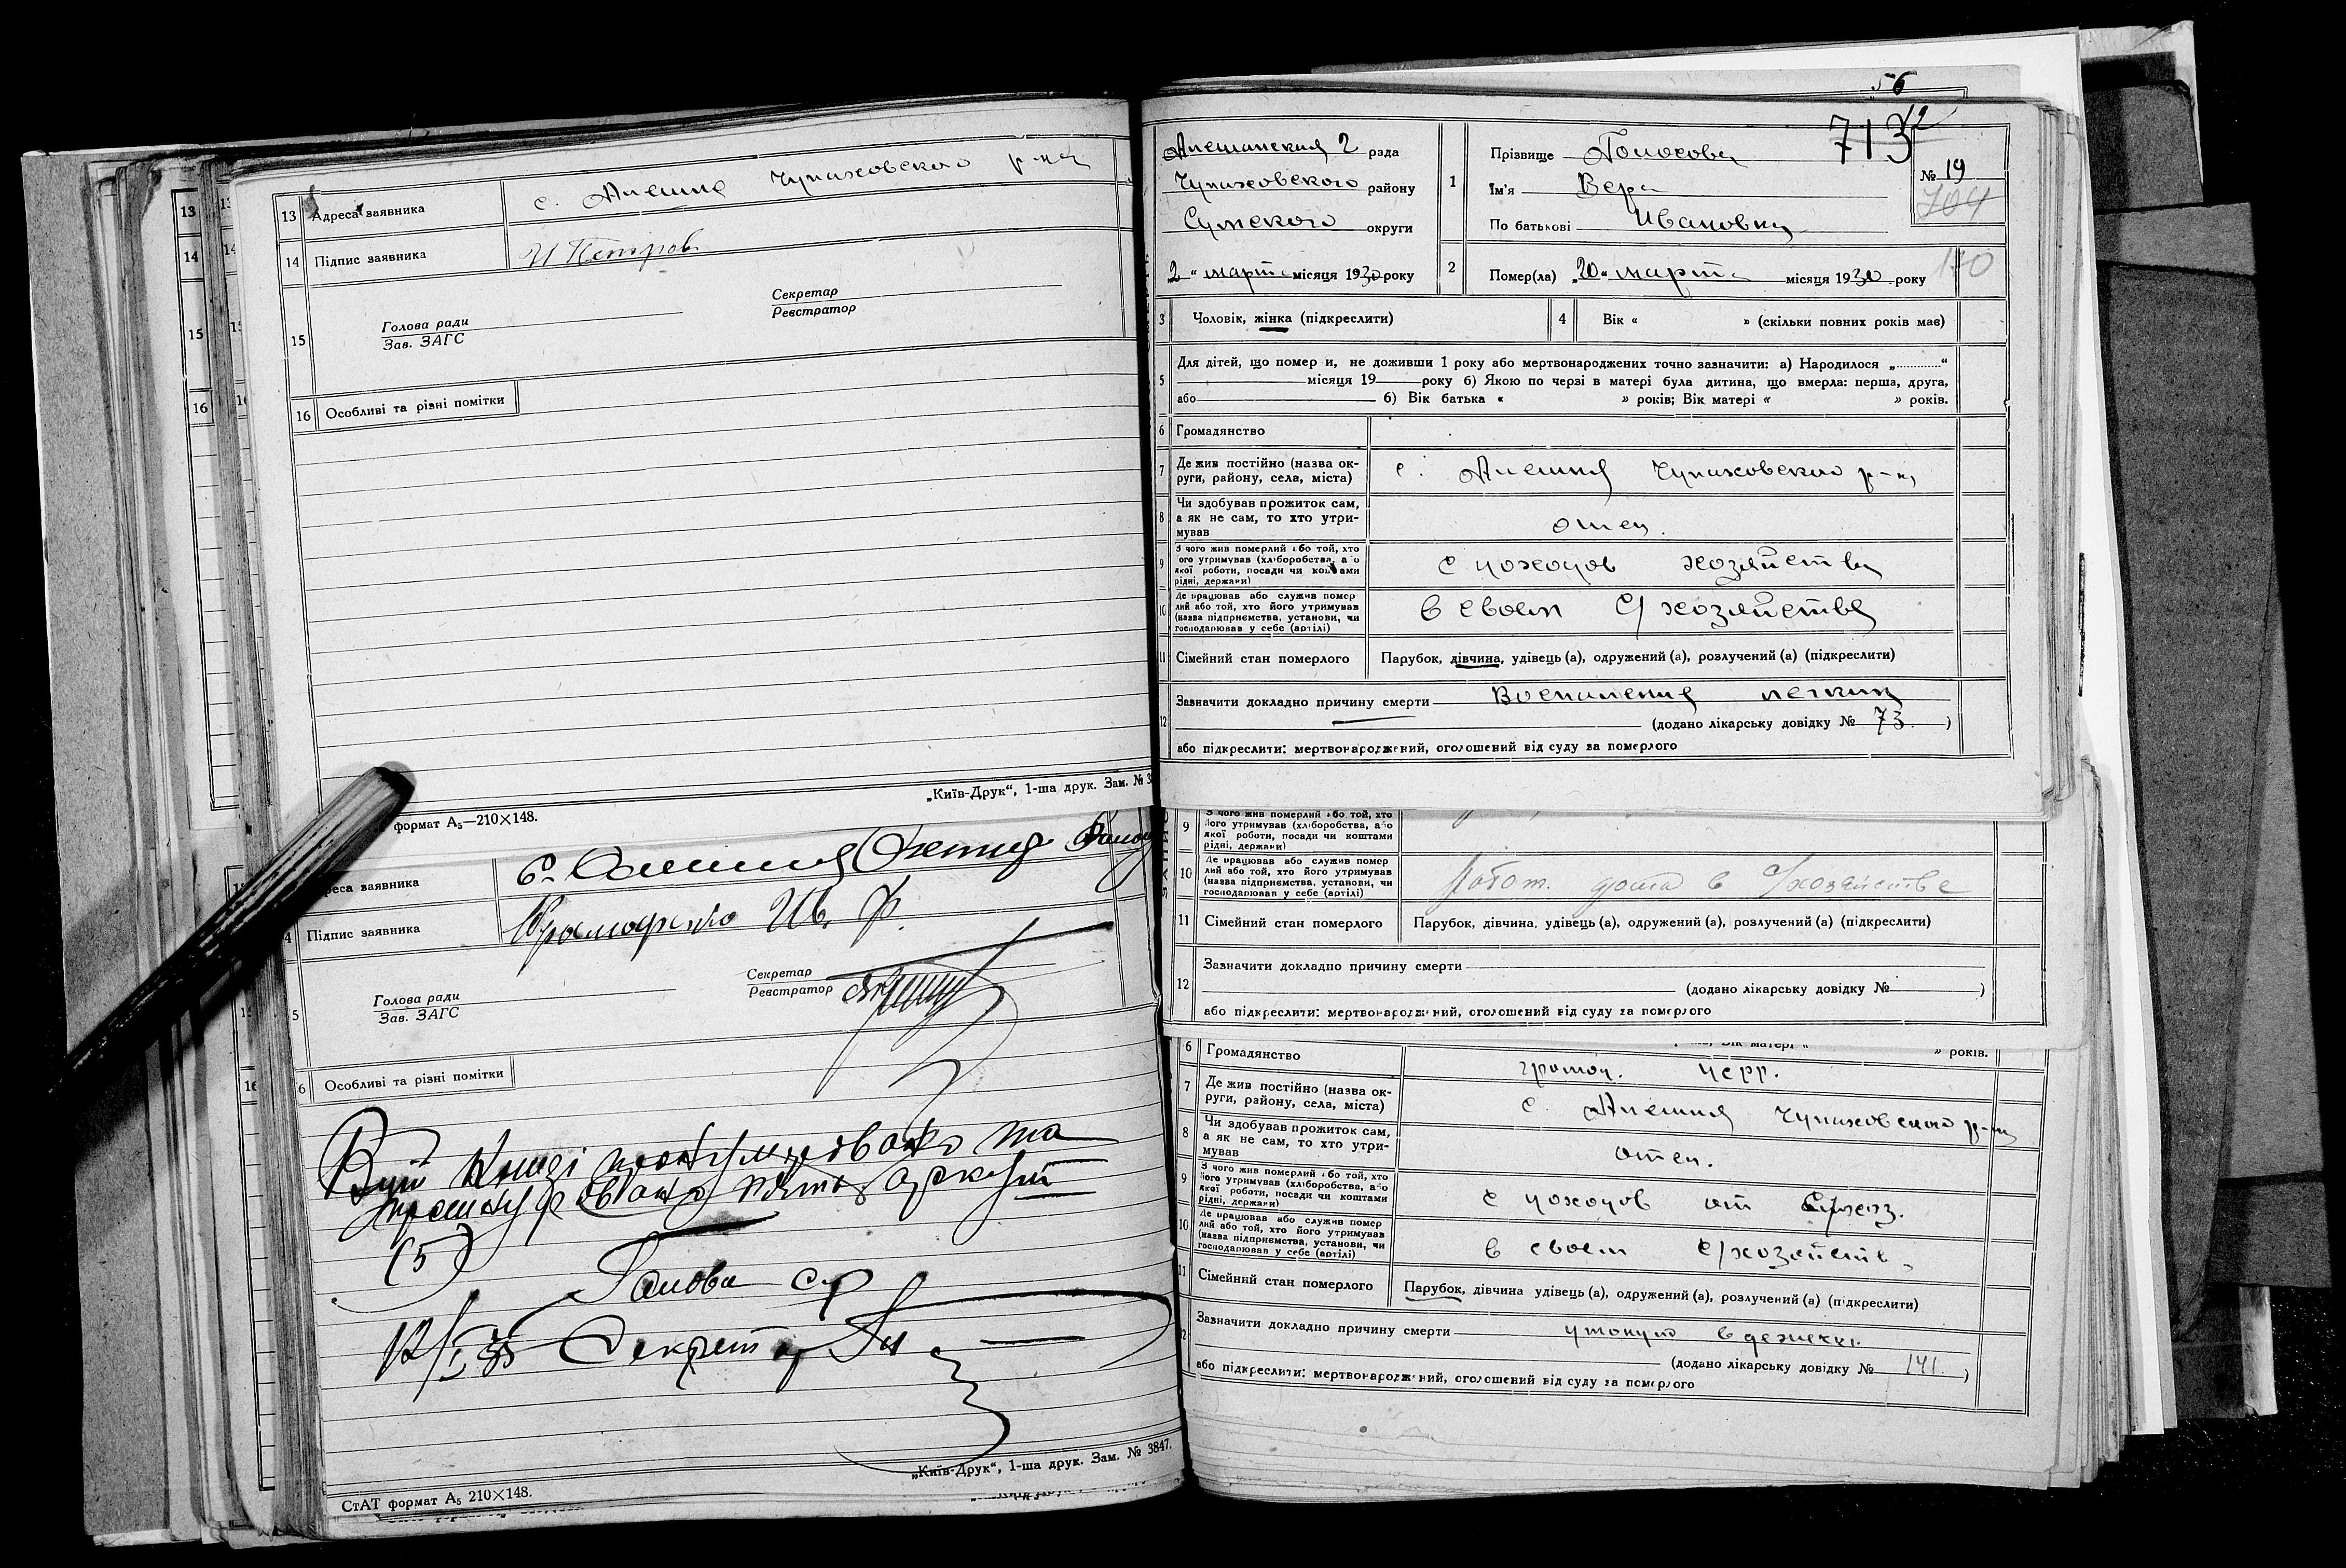 13 Адреса заявника с. Алешня Чупаховского р-на
14 Підпис заявника И Петров
15
Голова ради
Зав. ЗАГС
Секретар
Реєстратор
16 Особливі та різні помітки
„Київ-Друк“, 1-ша друк. Зам. № 3
формат А5—210×148.
реса заявника
4 Підпис заявника Ив. Ф.
5
Голова ради
Зав. ЗАГС
Секретар
Реєстратор
6 Особливі та різні помітки
Книзі пронумеровано та
аркушів
(5)
Голова с/р
Секретар
„Київ-Друк“, 1-ша друк. Зам. № 3847.
СтАТ формат А5 210×148.
56
713
Алешанская 2 рада
Чупаховского району
Сумского округи
„2“ марта місяця 1930 року
1
Прізвище
Ім'я Вера
По батькові Ивановна
№ 19
704
2 Помер(ла) „20“ марта місяця 1930 року
170
3 Чоловік, жінка (підкреслити)
4 Вік « » (скільки повних років має)
5 Для дітей, що помер и, не доживши 1 року або мертвонароджених точно зазначити: а) Народилося „............“
місяця 19 року б) Якою по черзі в матері була дитина, що вмерла: перша, друга,
або б) Вік батька « » років; Вік матері « » років.
6 Громадянство
7 Де жив постійно (назва округи, району, села, міста) с. Алешня Чупаховского р-н,
8 Чи здобував прожиток сам, а як не сам, то хто утримував отец.
9 З чого жив померлий або той, хто його утримував (хліборобства, або якої роботи, посади чи коштами рідні, держави) с доходов хозяйства
10 Де працював або служив померлий або той, хто його утримував (назва підприємства, установи, чи господарював у себе (артілі) в своем с/хозяйстве
11 Сімейний стан померлого Парубок, дівчина, удівець(а), одружений(а), розлучений(а) (підкреслити)
12 Зазначити докладно причину смерти Воспаления легких
(додано лікарську довідку № 73. )
або підкреслити: мертвонароджений, оголошений від суду за померлого
9 З чого жив померлий або той, хто його утримував (хліборобства, або якої роботи, посади чи коштами рідні, держави)
10 Де працював або служив померлий або той, хто його утримував (назва підприємства, установи, чи господарював у себе (артілі) работ. дома в с/хозяйстве
11 Сімейний стан померлого Парубок, дівчина, удівець(а), одружений(а), розлучений(а) (підкреслити)
12 Зазначити докладно причину смерти
(додано лікарську довідку № )
або підкреслити: мертвонароджений, оголошений від суду за померлого
Вік матері « » років.
6 Громадянство
7 Де жив постійно (назва округи, району, села, міста) с. Алешня Чупаховского р-на
8 Чи здобував прожиток сам, а як не сам, то хто утримував отец.
9 З чого жив померлий або той, хто його утримував (хліборобства, або якої роботи, посади чи коштами рідні, держави) с доходов от с/хоз.
10 Де працював або служив померлий або той, хто його утримував (назва підприємства, установи, чи господарював у себе (артілі) в своем с/хозяйств,
11 Сімейний стан померлого Парубок, дівчина удівець(а), одружений(а), розлучений(а) (підкреслити)
2 Зазначити докладно причину смерти утонул
(додано лікарську довідку № 141. )
або підкреслити: мертвонароджений, оголошений від суду за померлого